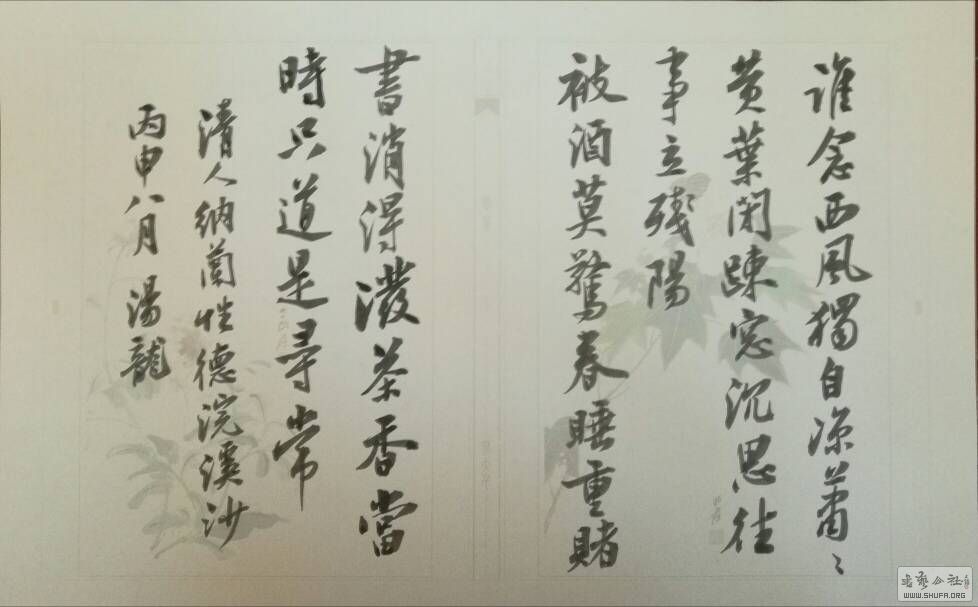 誰念西風獨自涼蕭〻
黄葉閉疎窓沉思往
事立殘陽
被酒莫驚春睡重賭
書消得潑茶香當
時只道是尋常
清人納蘭性德浣溪沙
丙申八月 湯龍
书艺公社
WWW.SHUFA.ORG